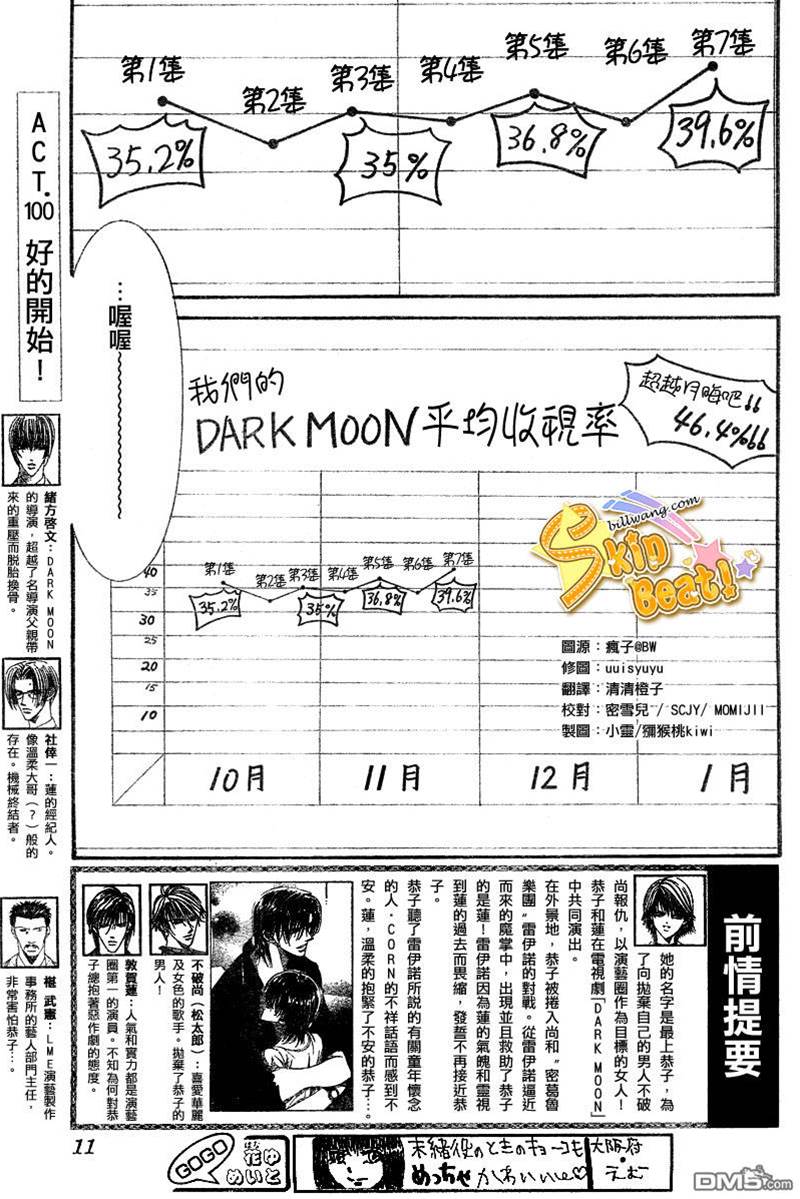 第1集
第2集
第3集
第4集
第5集
第6集
第7集
35.2%
35%
36.8%
39.6%
ACT.100 好的開始！
…喔喔～～～
我們的
DARK MOON 平均收視率
超越月晦吧!!
46.4%!!
billwang.com
Skip Beat!
圖源：瘋子@BW
修圖：uuisyuyu
翻譯：清清橙子
校對：密雪兒 / SCJY/ MOMIJII
製圖：小靈/獼猴桃kiwi
第1集
第2集
第3集
第4集
第5集
第6集
第7集
35.2%
35%
36.8%
39.6%
40
35
30
25
20
15
10
10月
11月
12月
1月
緒方啓文：DARK MOON
的導演，超越了名導演父親帶
來的重壓而脱胎換骨。
社倖一：蓮的經紀人。
像溫柔大哥（？）般的
存在。機械終結者。
椹 武憲：LME演藝製作
事務所的藝人部門主任，
非常害怕恭子…。
前情提要
她的名字是最上恭子，為
了向拋棄自己的男人不破
尚報仇，以演藝圈作為目標的女人！
恭子和蓮在電視劇「DARK MOON」
中共同演出。
在外景地，恭子被捲入尚和"密葛魯
樂團"雷伊諾的對戰。從雷伊諾逼近
而來的魔掌中，出現並且救助了恭子
的是蓮！雷伊諾因為蓮的氣魄和靈視
到蓮的過去而畏縮，發誓不再接近恭
子。
恭子聽了雷伊諾所説的有關童年懷念
的人·CORN的不祥話語而感到不
安。蓮，溫柔的抱緊了不安的恭子…。
不破尚（松太郎）：喜愛華麗
及女色的歌手。拋棄了恭子的
男人！
敦賀蓮：人氣和實力都是演藝
圈第一的演員。不知為何對恭
子總抱著惡作劇的態度。
11
GOGO
花ゆ
めいと
未緒役のときのキョーコも
めっちゃかわいい♡
大阪府
・えむ
DM5.com